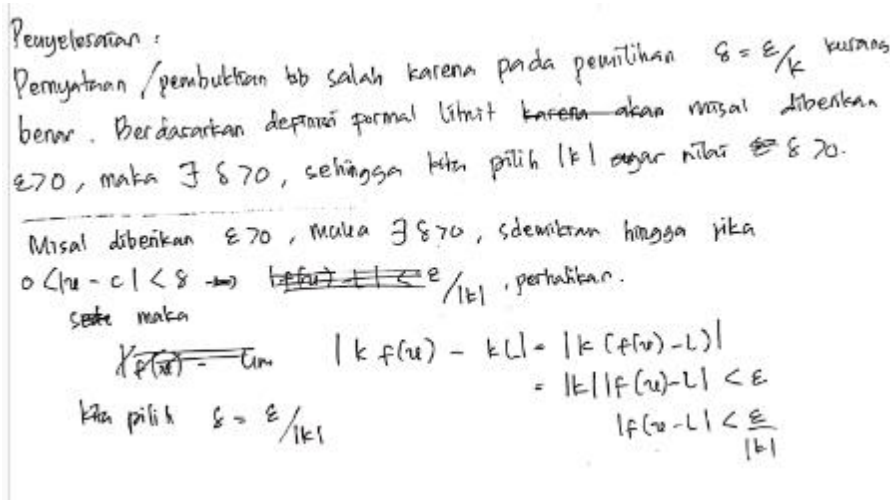 Penyelesaian :
Pernyataan / pembuktian bb salah karena pada pemilihan δ = ε/k kurang
benar. Berdasarkan definisi formal limit karena akan misal diberikan
ε>0, maka ∃ δ>0, sehingga kita pilih |k| agar nilai δ >0.
Misal diberikan ε>0, maka ∃ δ>0, sdemikian hingga jika
0 <|x - c| < δ → ε/|k|, perhatikan.
maka
|k f(x) - kL| = |k (f(x)-L)|
= |k||f(x)-L| < ε
kita pilih δ = ε/|k|
|f(x-L| < ε/|k|